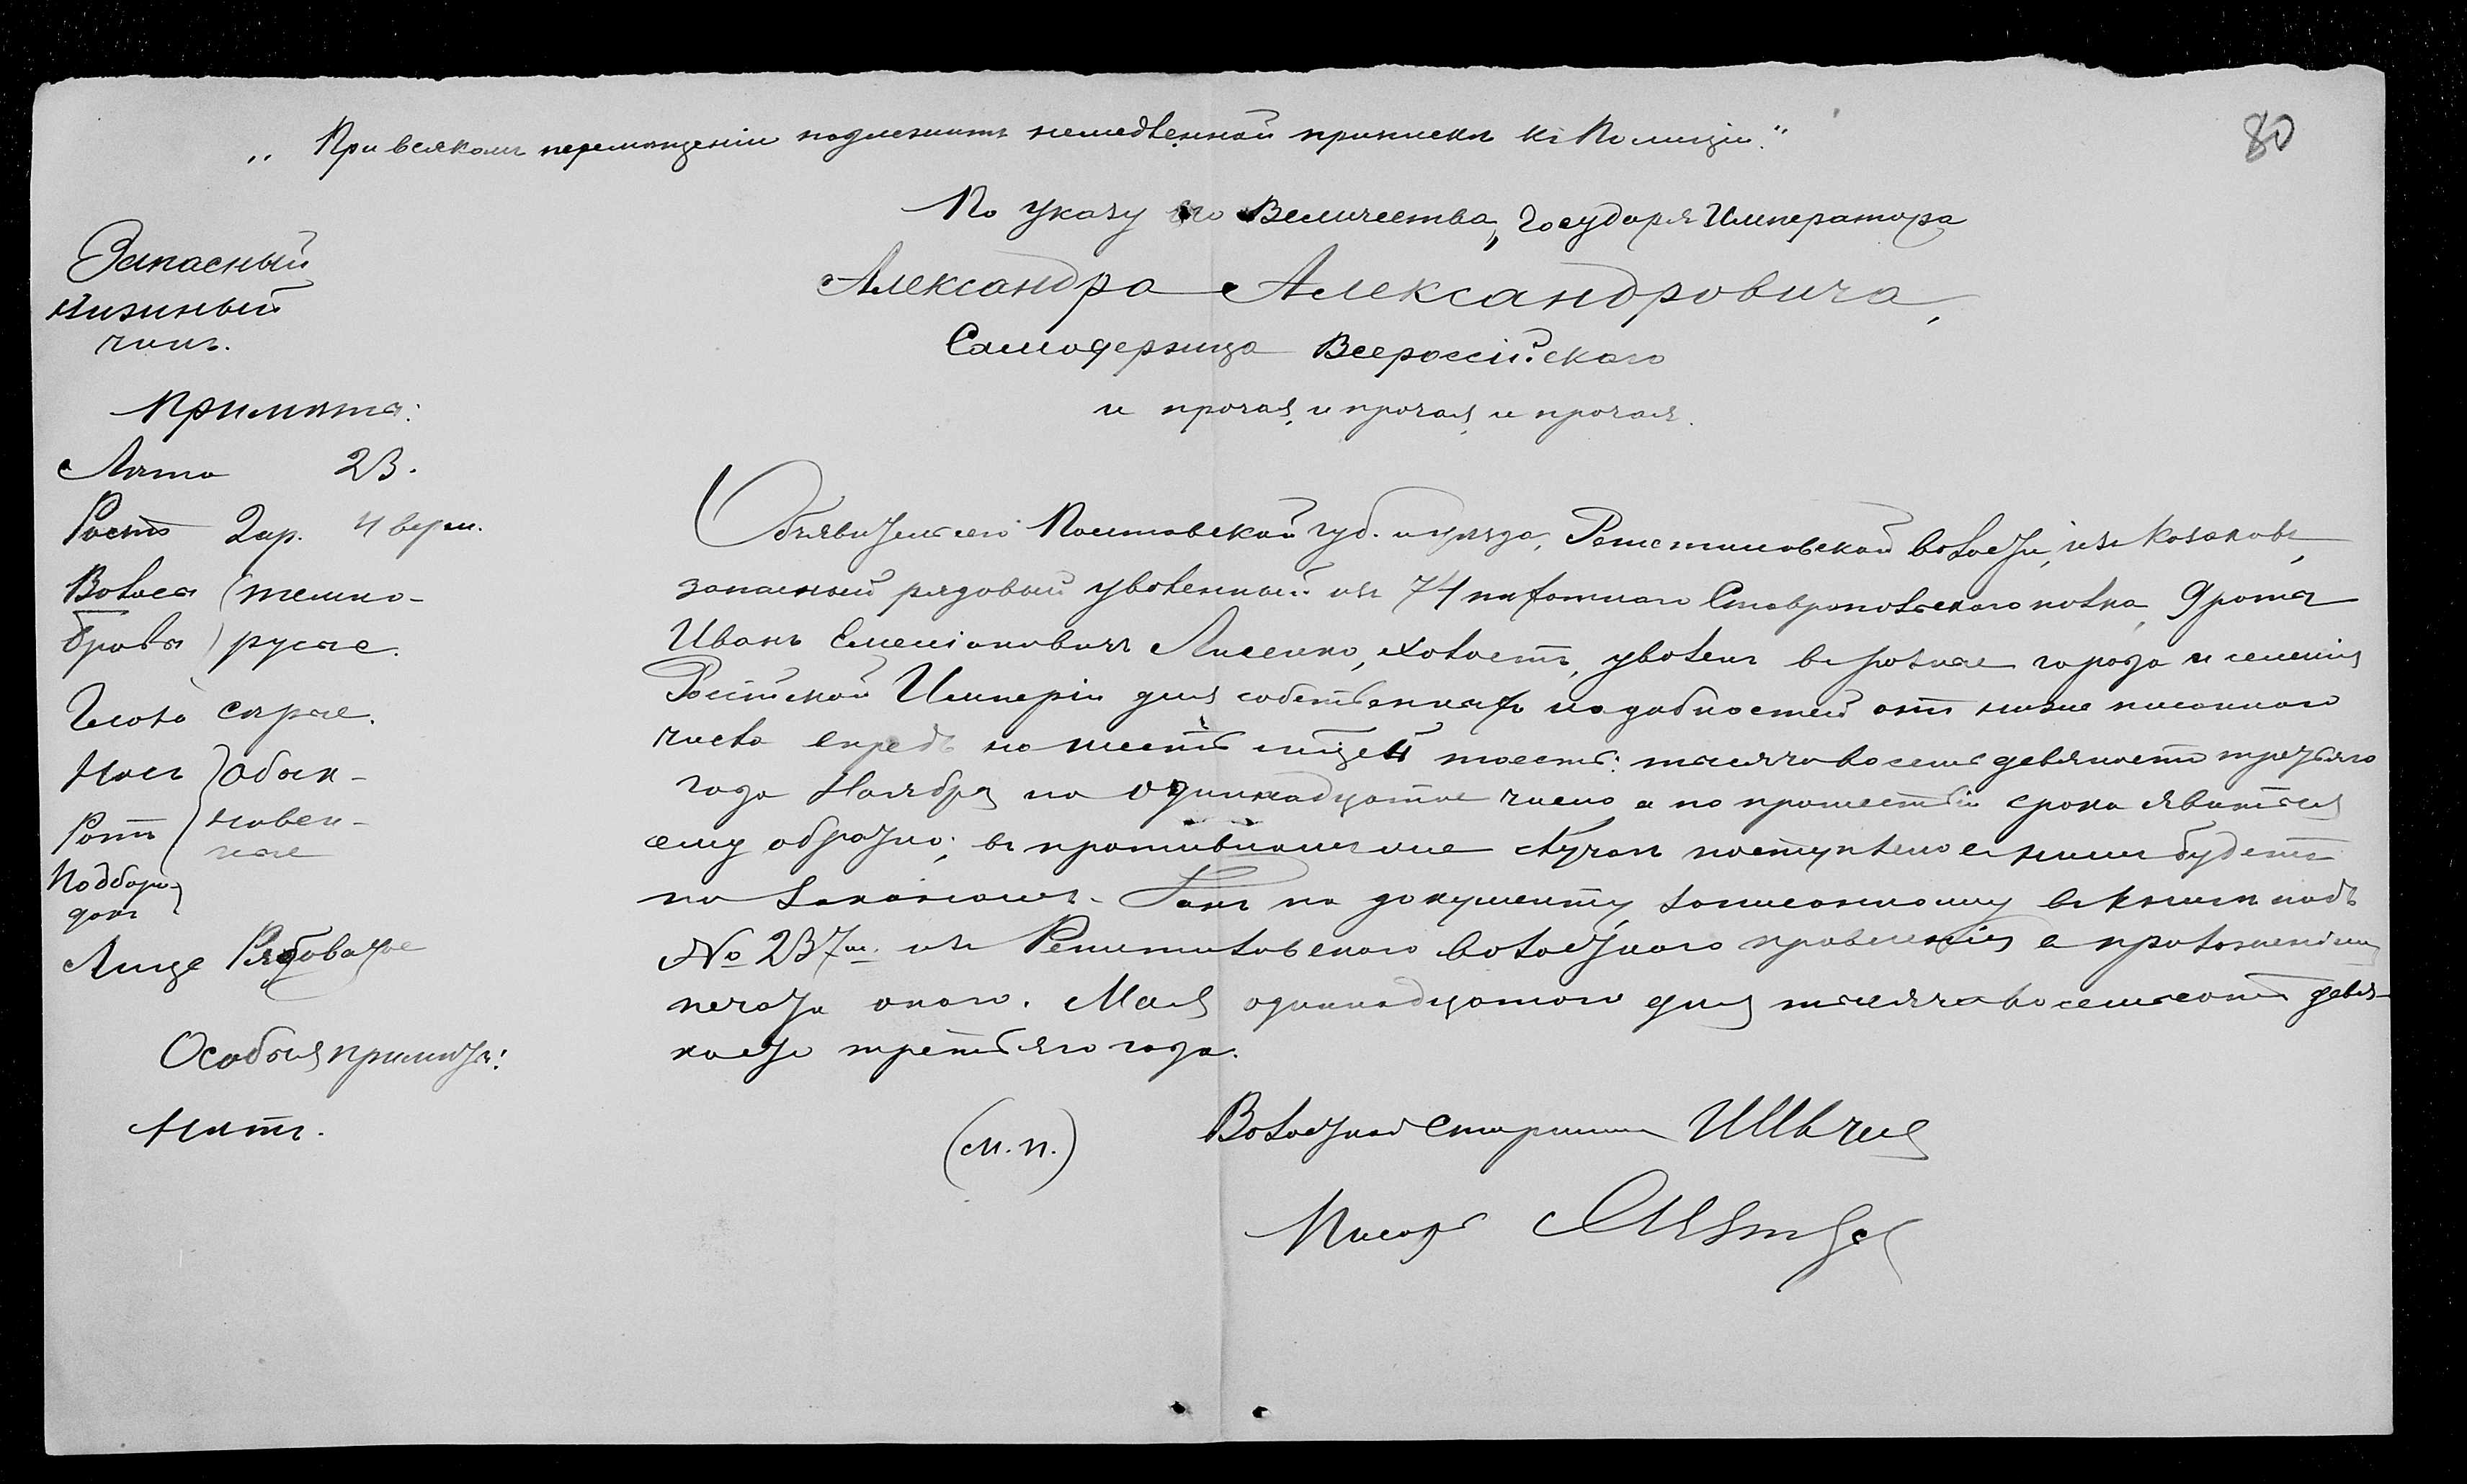 „При всякомъ перемѣщеніи подлежитъ немедленной припискѣ къ Полиціи.“
80
По указу его Величества, Государя Императора
Александра Александровича,
Самодержца Всероссійскаго
и прочая, и прочая, и прочая.
Запасный
нижній
чинъ.
Примѣта:
Лѣта 23.
Ростъ 2 ар. 4 верш.
Волоса темно-
брови русые.
Глаза сѣрые.
Носъ обык-
Ротъ новен-
ные
Подборо-
докъ
Лице Рябоватое
Особыя примѣты:
Нѣтъ.
Объявитель сего Полтавской губ. и уѣзда, Решетиловской волости, изъ козаковъ,
запасный рядовой уволенный изъ 74 пѣхотнаго Ставропольскаго полка, 9 роты
Иванъ Симеоновичъ Лисенко, холостъ, уволенъ въ разные города и селенія
Россійской Имперіи для собственныхъ надобностей отъ ниже писаннаго
числа впредь на шесть мѣсяцей тоесть: тысяча восемь девяносто третьяго
года Ноября по одинадцатое число, а по прошествіи срока явиться
ему обратно; въ противномъ же случаѣ поступлено съ нимъ будетъ
по законамъ. Данъ по документу, записанному въ книгѣ подъ
№ 237м. изъ Решетиловскаго волостнаго правленія съ приложеніемъ
печати онаго. Мая одинадцатаго дня тысяча восемьсотъ девя-
носто третьяго года.
(М.П.)
Волостной Старшина
Писарь